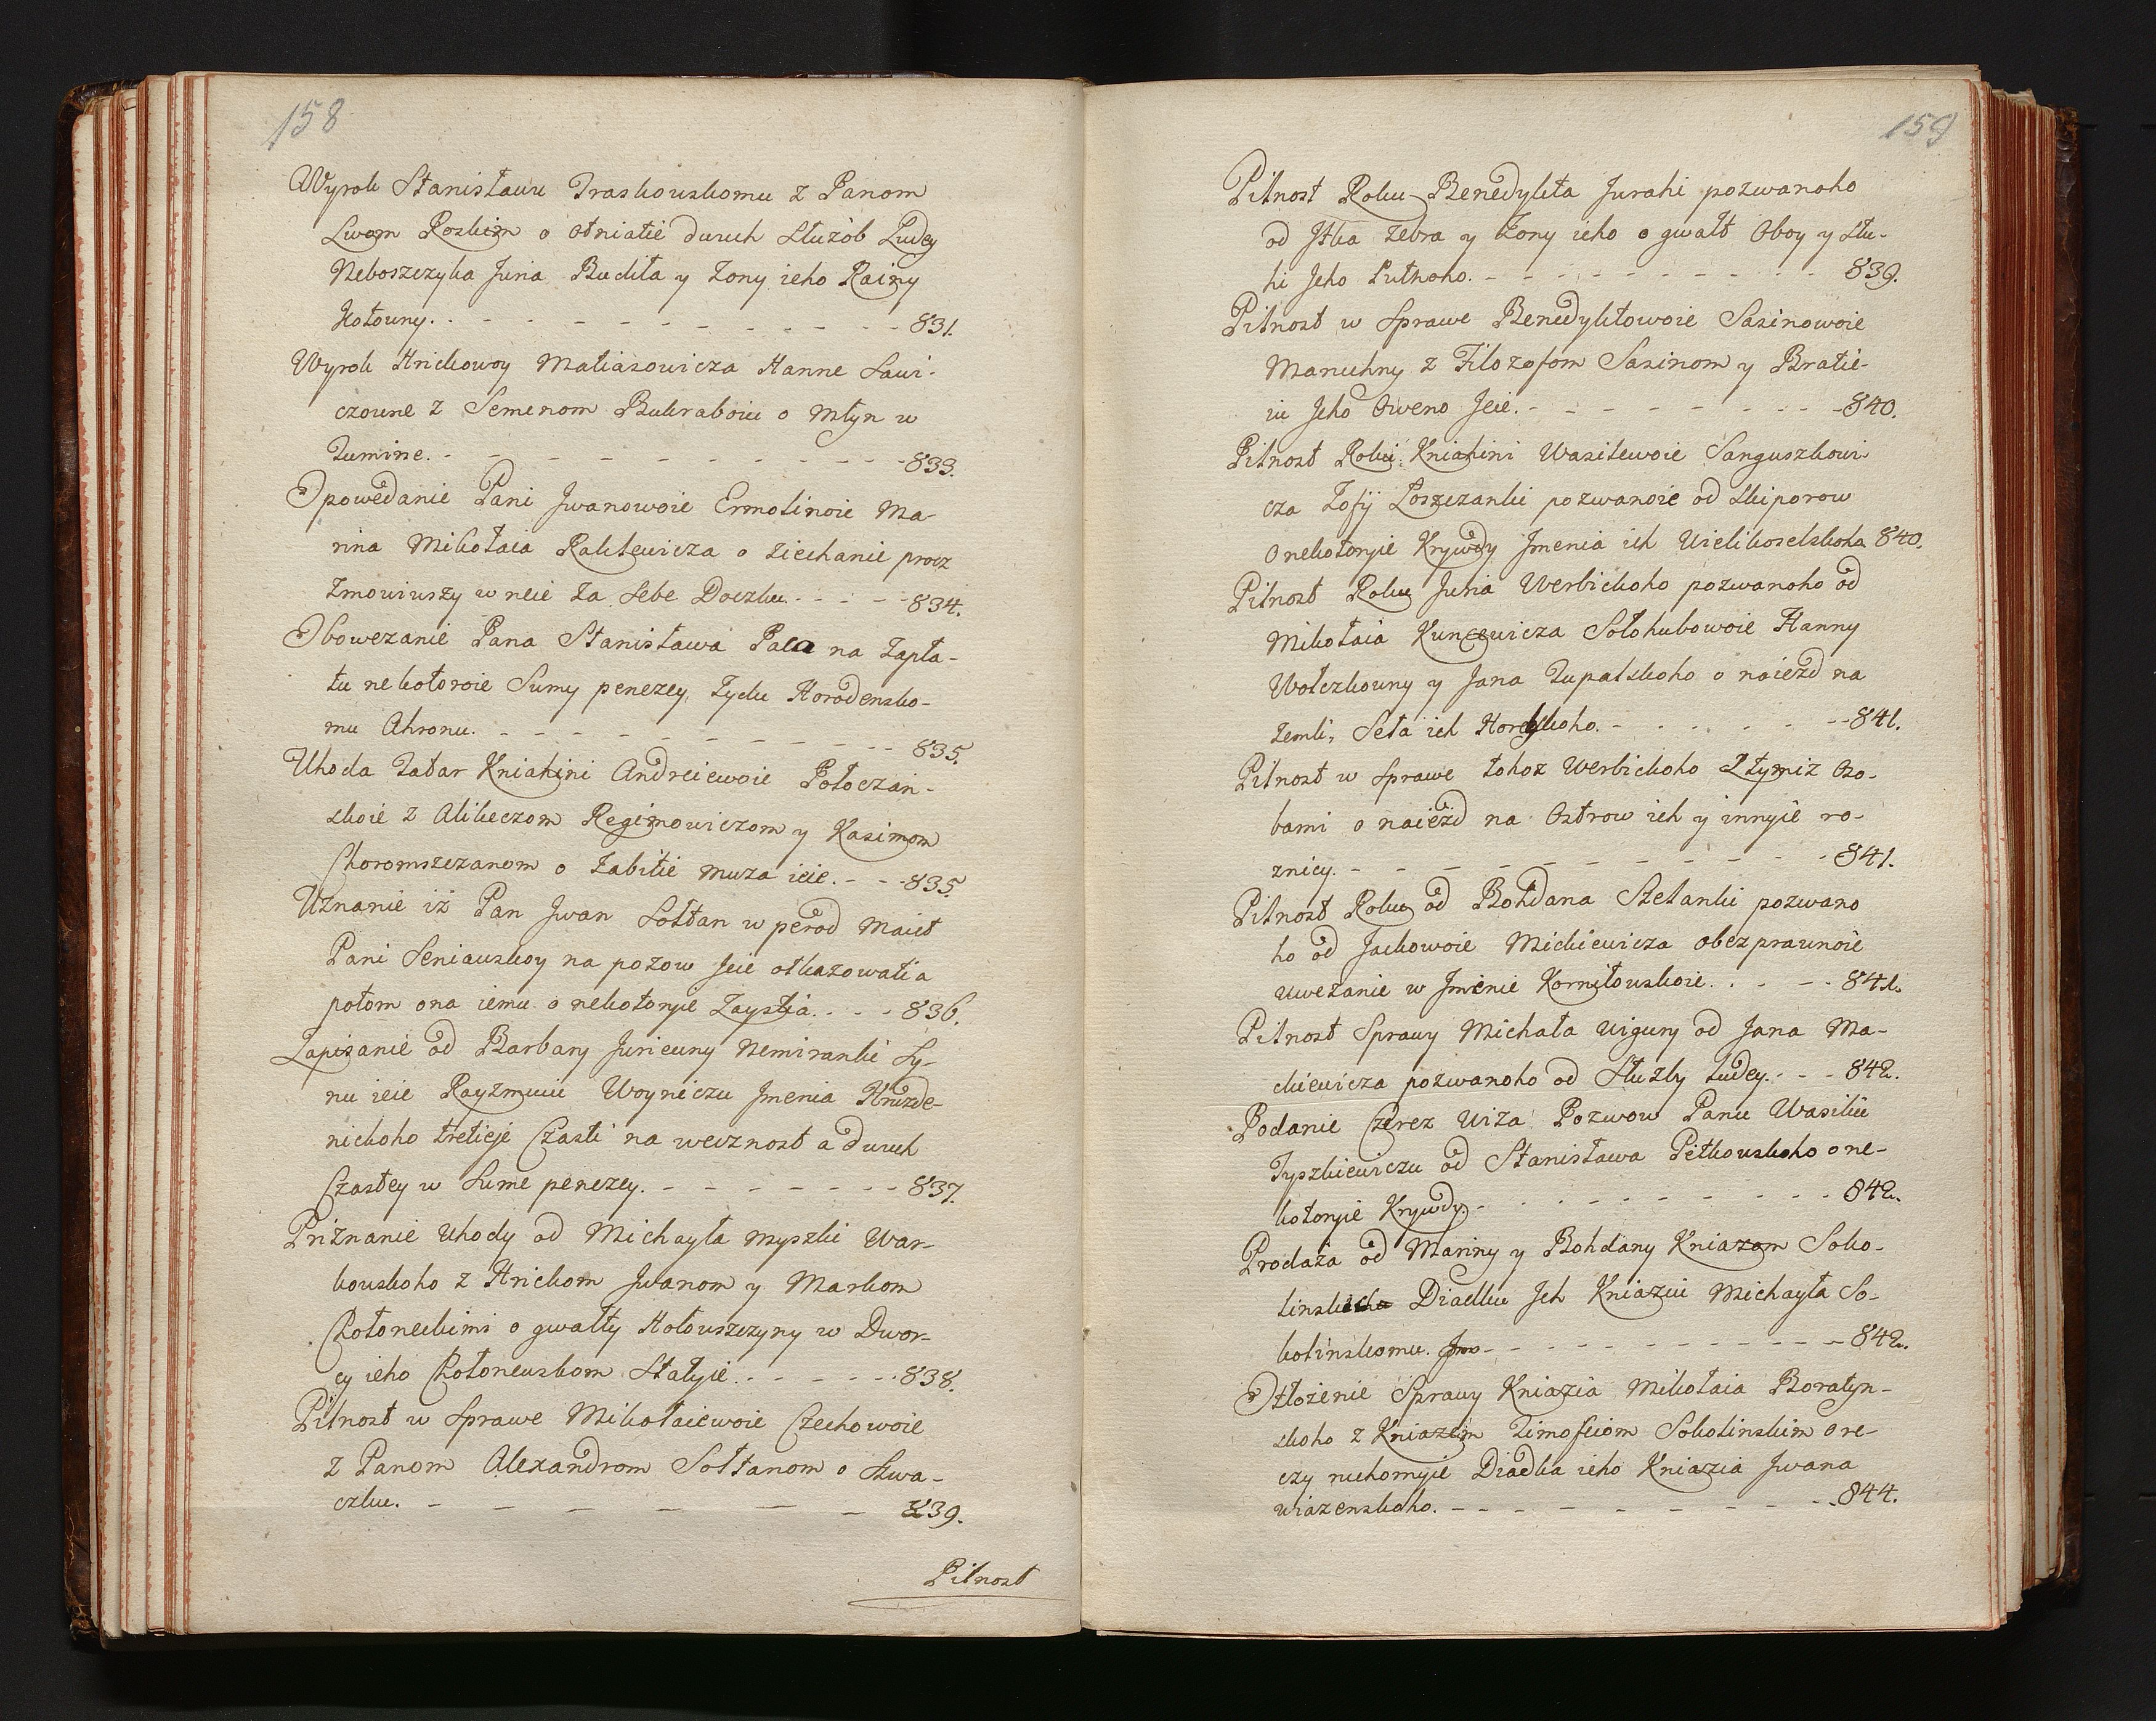 158
Wyrok Stanisławu Traskouskomu z Panom
Lwom Roskim o otniatie dwuch Służob Ludey
Neboszczyka Juria Budiła y Żony ieho Rainy
Hołowny. 831.
Wyrok Hrickowoy Matiasowicza Hanne Sawi-
czowne z Semenom Bukraboiu o młyn w
Tumine. 833.
Opowedanie Pani Jwanowoie Ermolinoie Ma-
rina Mikołaia Raklewicza o ziechanie procz
Zmowiuszy w neie za Sebe Doczku 834.
Obowezanie Pana Stanisława Paca na zapła-
tu nekotoroie Sumy penezey Żydu Horodensko-
mu Ahronu. 835.
Uhoda Tatar Kniahini Andreiewoie Połoczan-
skoie z Alikeczom Regimowiczom y Kasimom
Choromszczanom o Zabitie muża ieie. 835.
Uznanie iż Pan Jwan Sołtan w pered maiet
Pani Seniauskoy na pozow Jeie otkazowati a
potom ona iemu o nekotoryie Zaystia. 836.
Zapisanie od Barbary Juriewny Nemiranki Sy-
nu ieie Rayzmuiu Woyniczu Jmenia Hnizde-
nickoho tretieje Czasti na wecznost a dwuch
Czastey w Sume penezey. 837.
Priznanie Uhody od Michayła myszki War-
kouskoho z Hrickom Jwanom y Markom
Chołoneckimi o gwałty Hołouszczyny w Dwor-
cy ieho Chołoneuskom Stałyie. 838.
Pilnost w Sprawe Mikołaiewoie Czechowoie
z Panom Alexandrom Sołtanom o Skwa-
czku. 839.
Pilnost
159
Pilnost Roku Benedykta Jurahi pozwanoho
od Jtka Zebra y Żony ieho o gwałt Oboy y Słu-
hi Jeho Putnoho. 839.
Pilnost w Sprawe Benedyktowoie Sasinowoie
Maruchny z Filozofom Sasinom y Bratie-
iu Jeho Oweno Jeie. 840.
Pilnost Roku Kniahini Wasilewoie Sanguszkowi-
cza Zofij Łoszczanki pozwanoie od Skiporow
o nekotoryie Krywdy Jmenia ich Wielikoselskoha 840.
Pilnost Roku Juria Werbickoho pozwanoho od
Mikołaia Kuncewicza Sołohubowoie Hanny
Wołczkowny y Jana Tupalskoho o naiezd na
Zemli, Seła ich Horodskoho. 841.
Pilnost w Sprawe tohoz Werbickoho z tymiz Oso-
bami o naiezd na Ostrow ich y innyie ro-
znicy. 841.
Pilnost Roku od Bohdana Stelanki pozwano
ho od Jackowoie Mickiewicza obezprawnoie
uwezanie w Jmenie Korniłouskoie. 841.
Pilnost Sprawy Michała Wigury od Jana Ma-
ckiewicza pozwanoho od Służby ludey. 842.
Podanie Czerez Wiża Pozwow Panu Wasiliu
Tyszkiewiczu od Stanisława Petkouskoho o ne-
kotoryie Krywdy. 842.
Prodaża od Mariny y Bohdany Kniazom Soko-
linskich Diadku Jch Kniaziu Michayła So-
kolinskomu. 842.
Otłożenie Sprawy Kniazia Mikołaia Boratyn-
skoho z Kniazem Timofeiom Sokolinskim o re-
czy ruchomyie Diadka ieho Kniazia Jwana
wiazenskoho. 844.